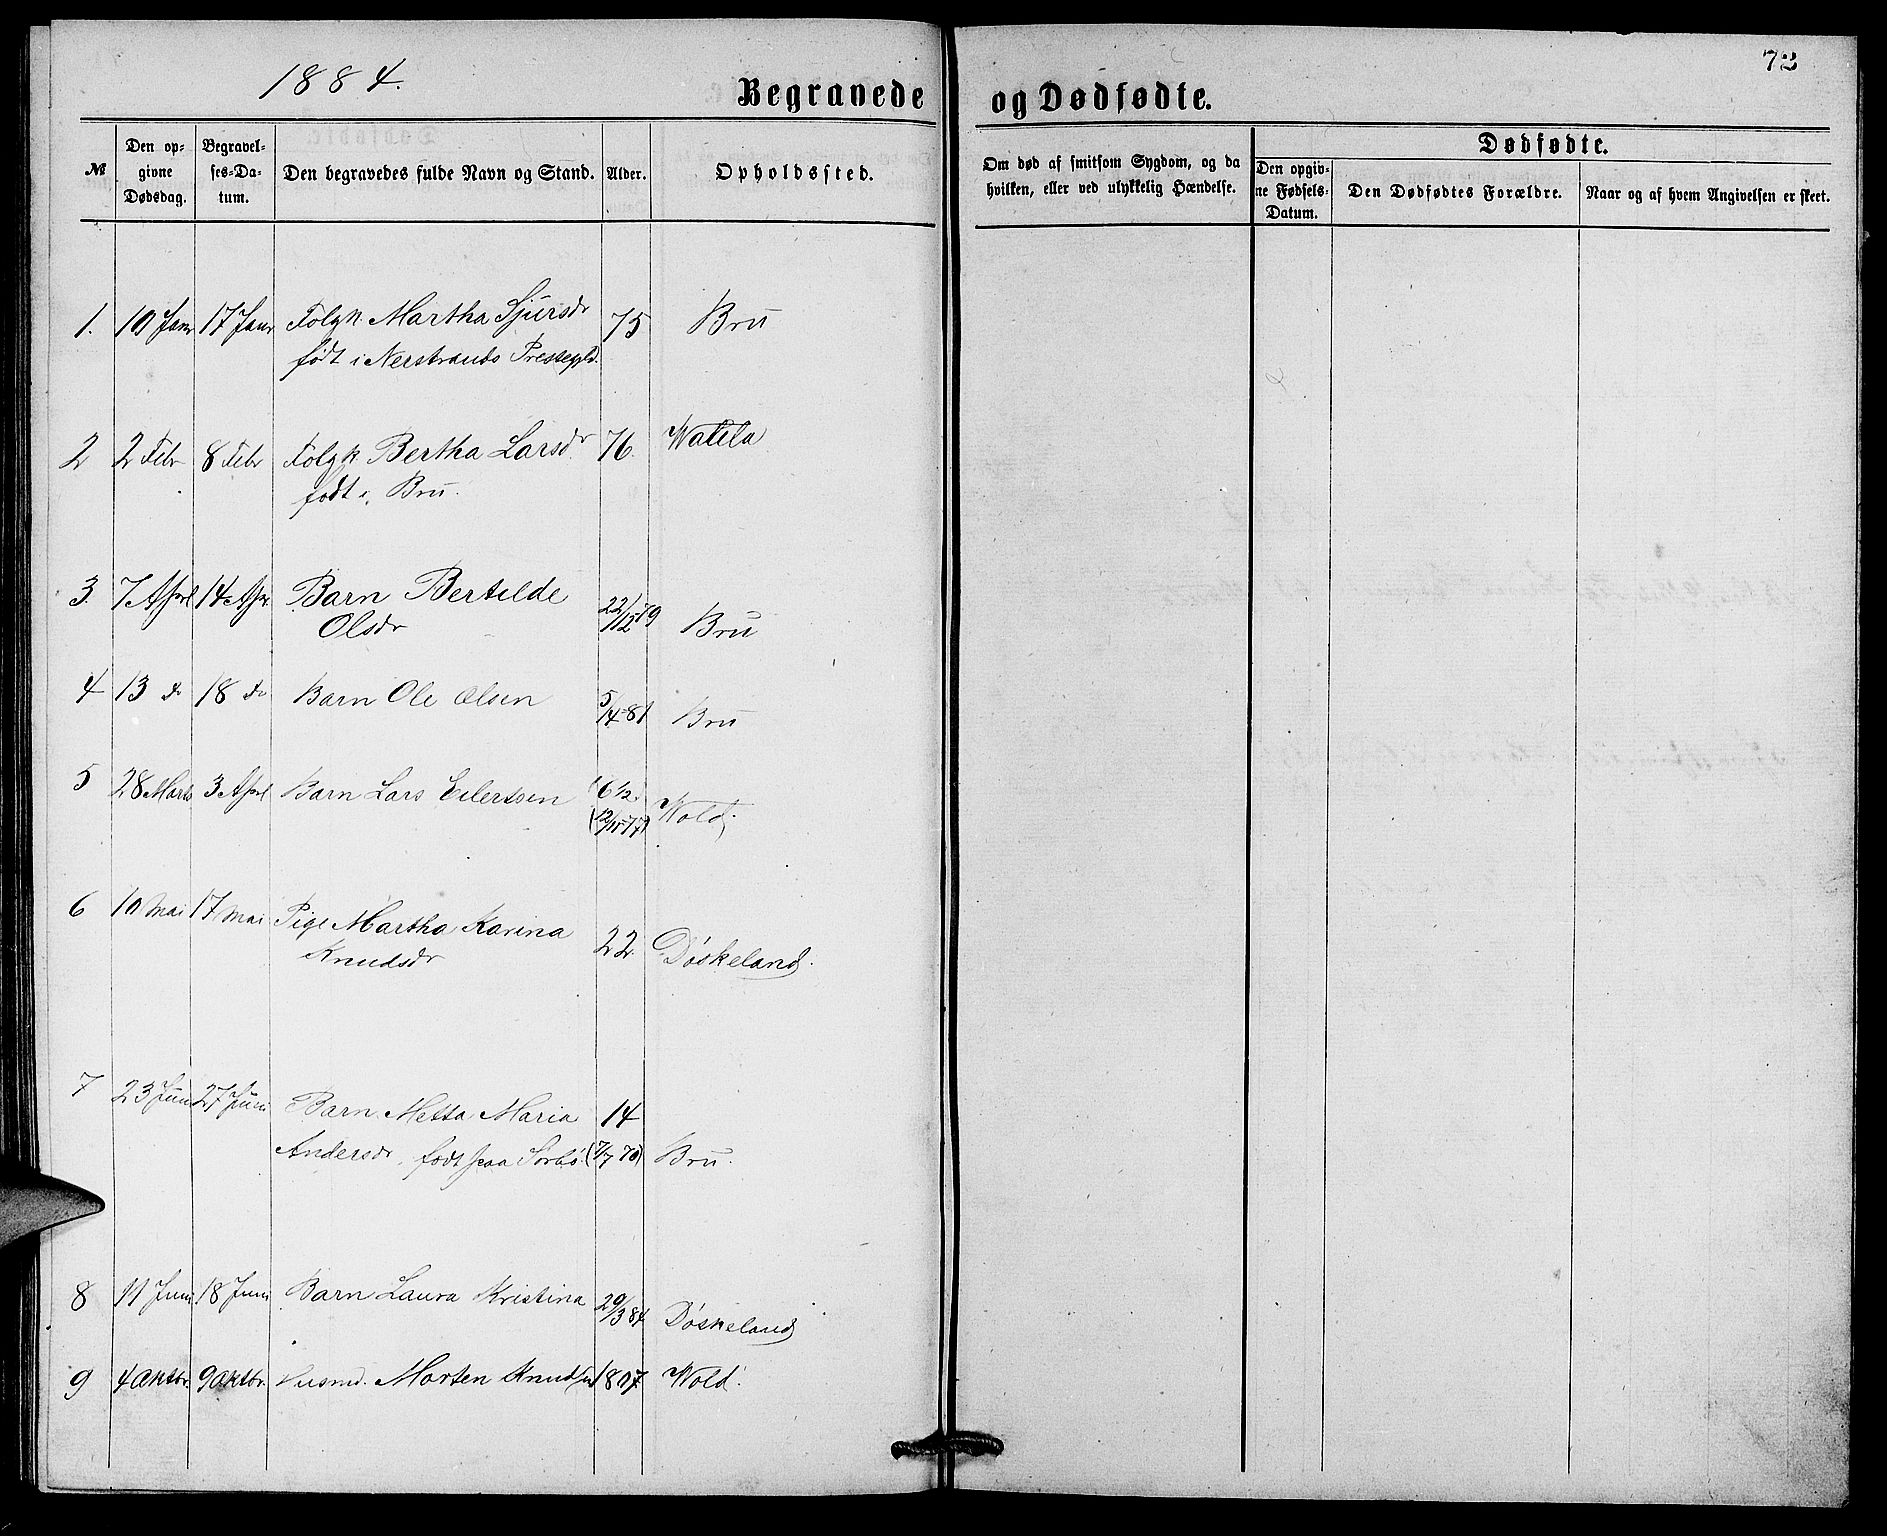 1884.
Begravede
og Dødfødte.
72
№
Den op-
givne
Dødsdag.
Begravel-
ses-Da-
tum.
Den begravedes fulde Navn og Stand.
Alder.
Opholdssted.
Om død af smitsom Sygdom, og da
hvilken, eller ved ulykkelig Hændelse.
Dødfødte.
Den opgiv-
ne Fødsels-
Datum.
Den Dødfødtes Forældre.
Naar og af hvem Angivelsen er skeet.
1. 10 Janr 17 Janr Folgk. Martha Sjursdr 75 Bru
født i Nerstrands Prestegjld.
2 2 Febr 8 Febr Folgk Bertha Larsdr 76. Watela
født i Bru.
3. 7 April 14 Apr. Barn Bertilde 22/12 79 Bru
Olsdr
4 13 do 18 do Barn Ole Olsen 5/4-81 Bru
5 28 Marts 3 April Barn Lars Eilertsen 6 1/2 Wold.
6 10 Mai 17 Mai Pige Martha Karina 22. Døskeland.
Knudsdr
7 23 Juni 27 Juni Barn Metta Maria 14
Andersdr, født paa Sørbø. (7/7 70) Bru.
8 11 Juni 18 Juni Barn Laura Kristina 29/3 84 Døskeland
9 4 Oktbr. 9 Oktbr. Husmd. Morten Knudsen 1807 Wold.